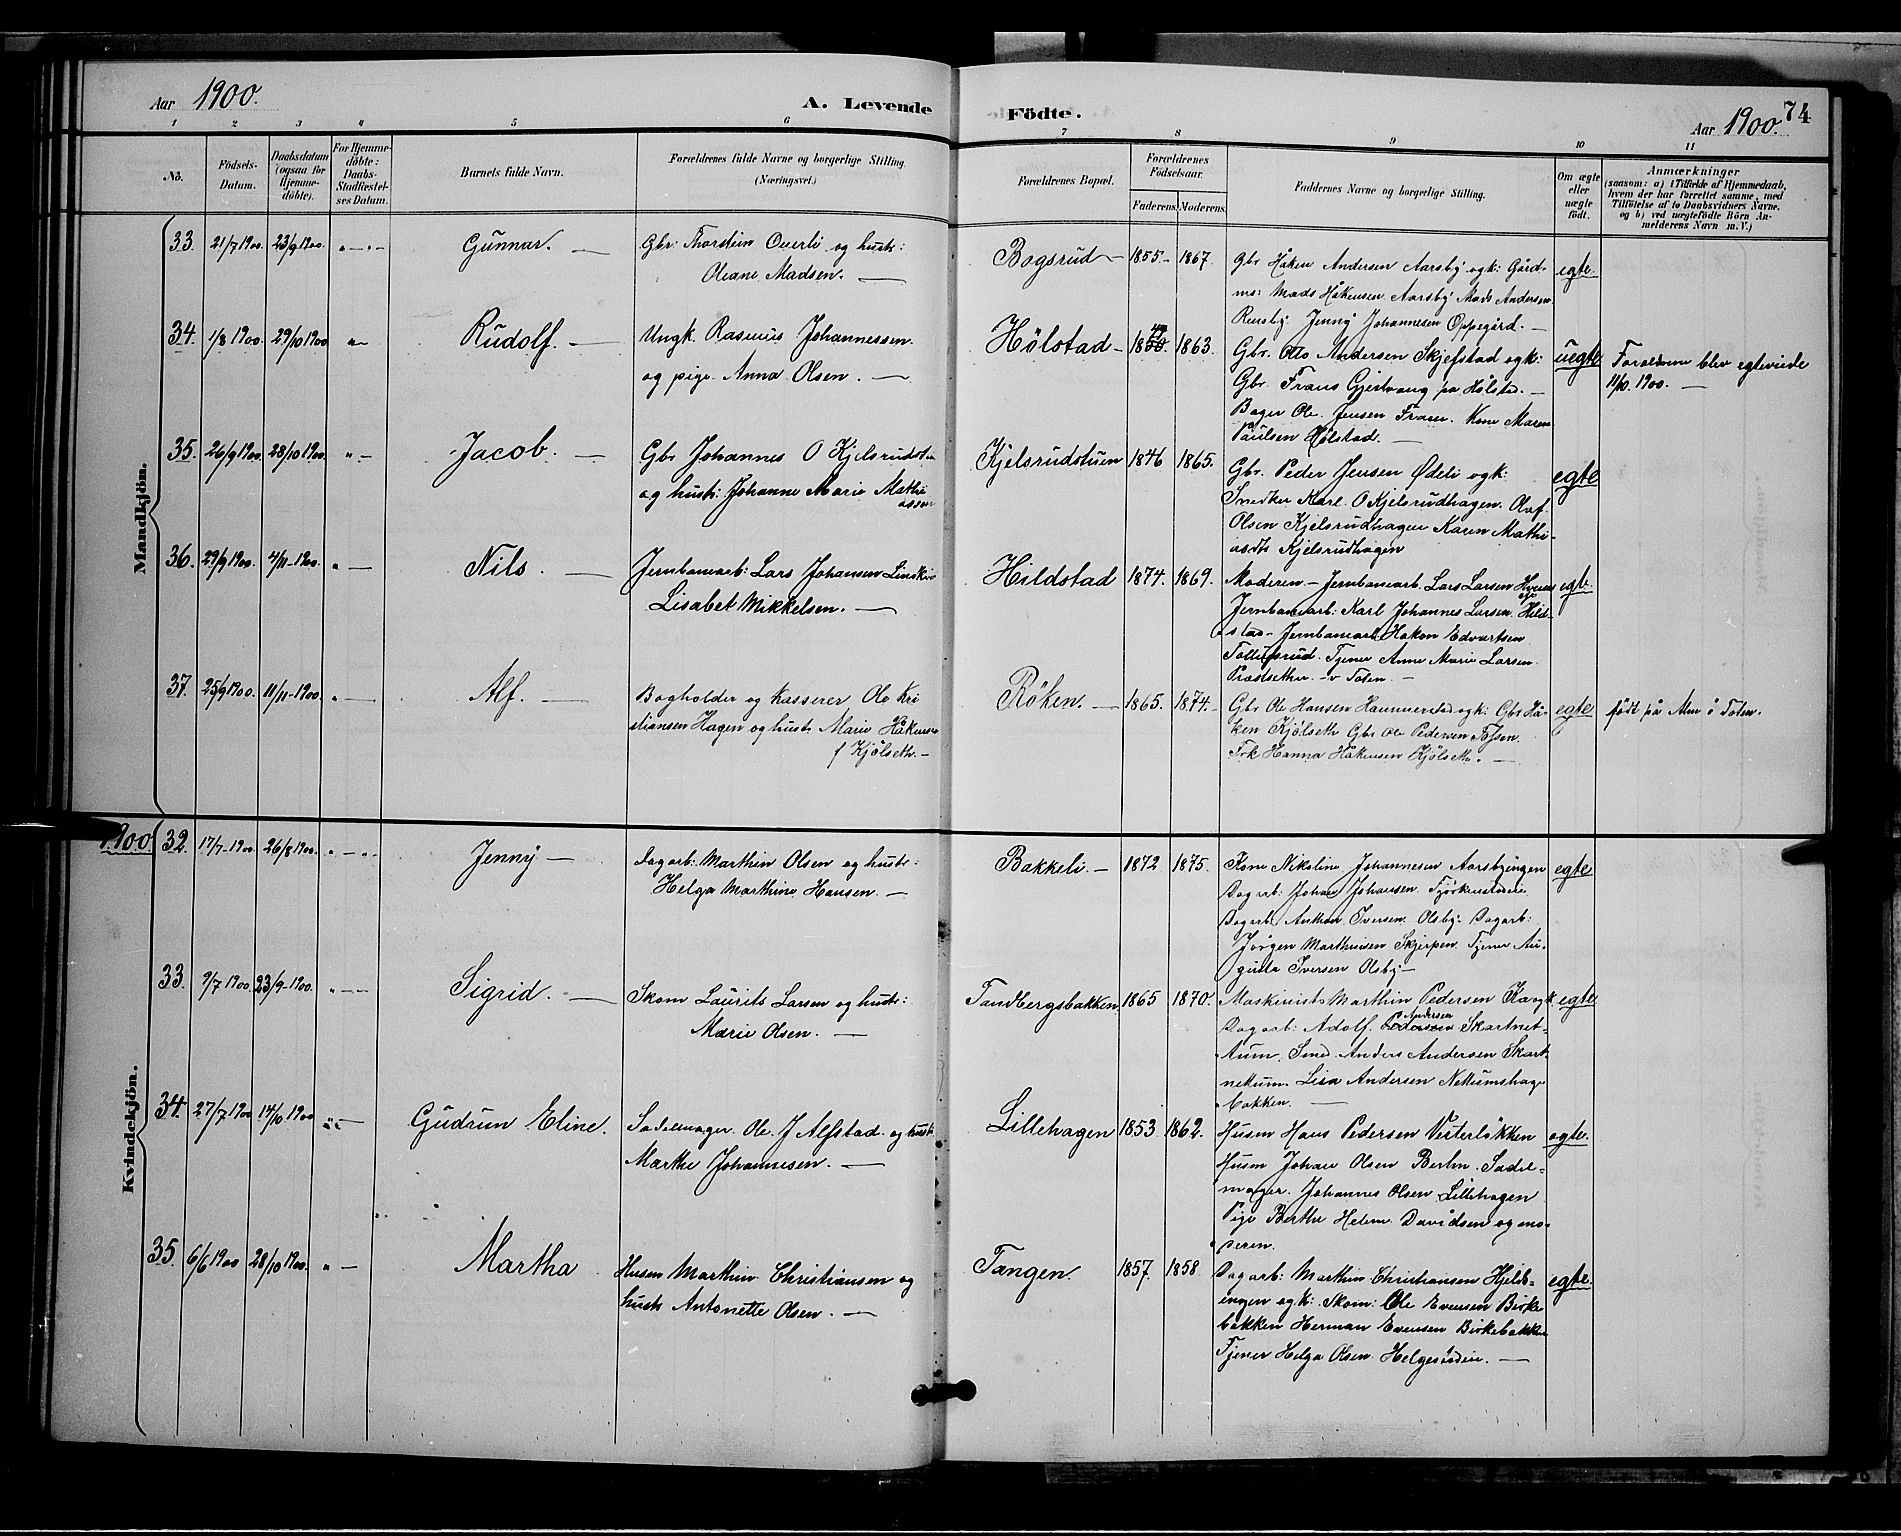 Aar 1900.
A. Levende Födte.
Aar 1900. 74
1 2 3 4 5 6 7 8 9 10 11
No.
Födsels-
Datum.
Daabsdatum
(ogsaa for
Hjemme-
döbte).
For Hjemme-
döbte:
Daabs-
Stadfæstel-
ses Datum.
Barnets fulde Navn.
Forældrenes fulde Navne og borgerlige Stilling.
(Næringsvei.)
Forældrenes Bopæl.
Forældrenes
Födselsaar.
Faderens. Moderens.
Faddernes Navne og borgerlige Stilling.
Om ægte
eller
uægte
födt.
Anmærkninger
(saasom: a) i Tilfælde af Hjemmedaab,
hvem der har forrettet samme, med
Tilföielse af to Daabsvidners Navne.
og b) ved uægtefödte Börn An-
melderens Navn m. V.)
Mandkjön.
33. 21/7 1900. 23/9 1900. " — " — Gunnar. — Gbr. Thorstein Overli og hustr:
Oleane Madsen. —
Bogsrud — 1855 - 1867.
Gbr Håken Andersen Aarsby ogk: Gård-
ms: Mads Håkensen Aarsby Mads Andersen
Reersby Jenny Johannesen Oppegård. —
egte.
34. 1/8 1900. 29/10 1900 " — Rudolf. — Ungk. Rasmus Johannessen.
og pige. Anna Olsen. —
Hølstad — 1850. 49 1863.
Gbr. Olo Andersen Skjefstad ogk:
Gbr. Frans Gjestvang pa Hølstad. —
Bager Ole Jensen Frarer. Kone Maren
Paulsen Hølstad. —
uegte
Forældrene blev egteviede
11/10. 1900. —
35. 26/9 1900. 28/10 1900. " — Jacob. — Gbr Johannes O Kjelsrudstn
og hustr: Johanne Marie Mathi
assen
Kjelsrudstuen 1846 1865.
Gbr. Peder Jensen Ødeli ogk:
Snedker Karl. O Kjelsrudhagen. Olaf.
Olsen Kjelsrudhagen Karen Mathi-
asdtr Kjelsrudhagen
egte
36. 29/9 1900. 4/11 - 1900. " — Nils. — Jernbanearb: Lars Johansen
Lisabet Mikkelsen. —
Hildstad 1874. 1869.
Moderen — Jernbanearb. Lars Larsen
Jernbanearb: Karl Johannes Larsen Hild-
stad — Jernbanearb Hakon Edvartsen
Tollefsrud. Tjener Anne Marie Larsen
Prestsether — v Toten. —
egte.
37. 25/9 1900. 11/11 - 1900. " — Alf. — Bogholder og Kasserer Ole Kri
stiansen Hagen og hustr Marie Håkensen
f Kjølseth. —
Røken. — 1865. 1874. -
Gbr Ole Hansen Hammerstad ogk: Gbr Hå-
ken Kjølseth Gbr Ole Pedersen
Frk Hanna Håkensen Kjølseth. —
egte
født på Alm ö Toten.
1900
Kvindekjön.
32. 17/7 - 1900. 26/8 1900. " — " Jenny — Dagarb: Marthin Olsen og hustr:
Helga Marthine Hansen. —
Bakkeli. — 1872 1875.
Kone Nikoline Johannesen Aarsbyengen
Dagarb: Johan Johansen
Dagarb: Anthon Iversen Olsby. Dagarb:
Jørgen Marthinsen Skjerpen. Tjener Au-
gusta Iversen Olsby —
egte
33. 9/7 1900. 23/9 - 1900. " — Sigrid. — Skom Laurits Larsen og hustr:
Marie Olsen. —
Tandbergsbakken 1865 1870.
Maskinist Marthin Pedersen
Dagarb: Adolf. Pedersen Andersen Skartnet-
tum. Smed. Anders Andersen Skart-
nettum. Lisa Andersen Nettumshage
bakken. —
egte
34. 27/7 1900 14/10 1900 " — Gudrun Eline. Sadelmager Ole. J Alfstad. og hustr
Marthe Johannesen. —
Lillehagen 1853 1862.
Husm Hans Pedersen Vesterløkken
Husm Johan Olsen Berlin. Sadel-
mager. Johannes Olsen Lillehagen
Pige Berthe Helene Davidsen og mo-
deren.
egte.
35. 6/6 1900 28/10 1900. " — Martha Husm Marthin Christiansen og
hustr Antonette Olsen. —
Tangen. 1857. 1858
Dagarb: Marthin Christiansen Hjelds-
engen ogk: Skom: Ole Evensen Birke
bakken Herman Evensen Birkebakken
Tjener Helga Olsen Helgesödeie. —
egte.